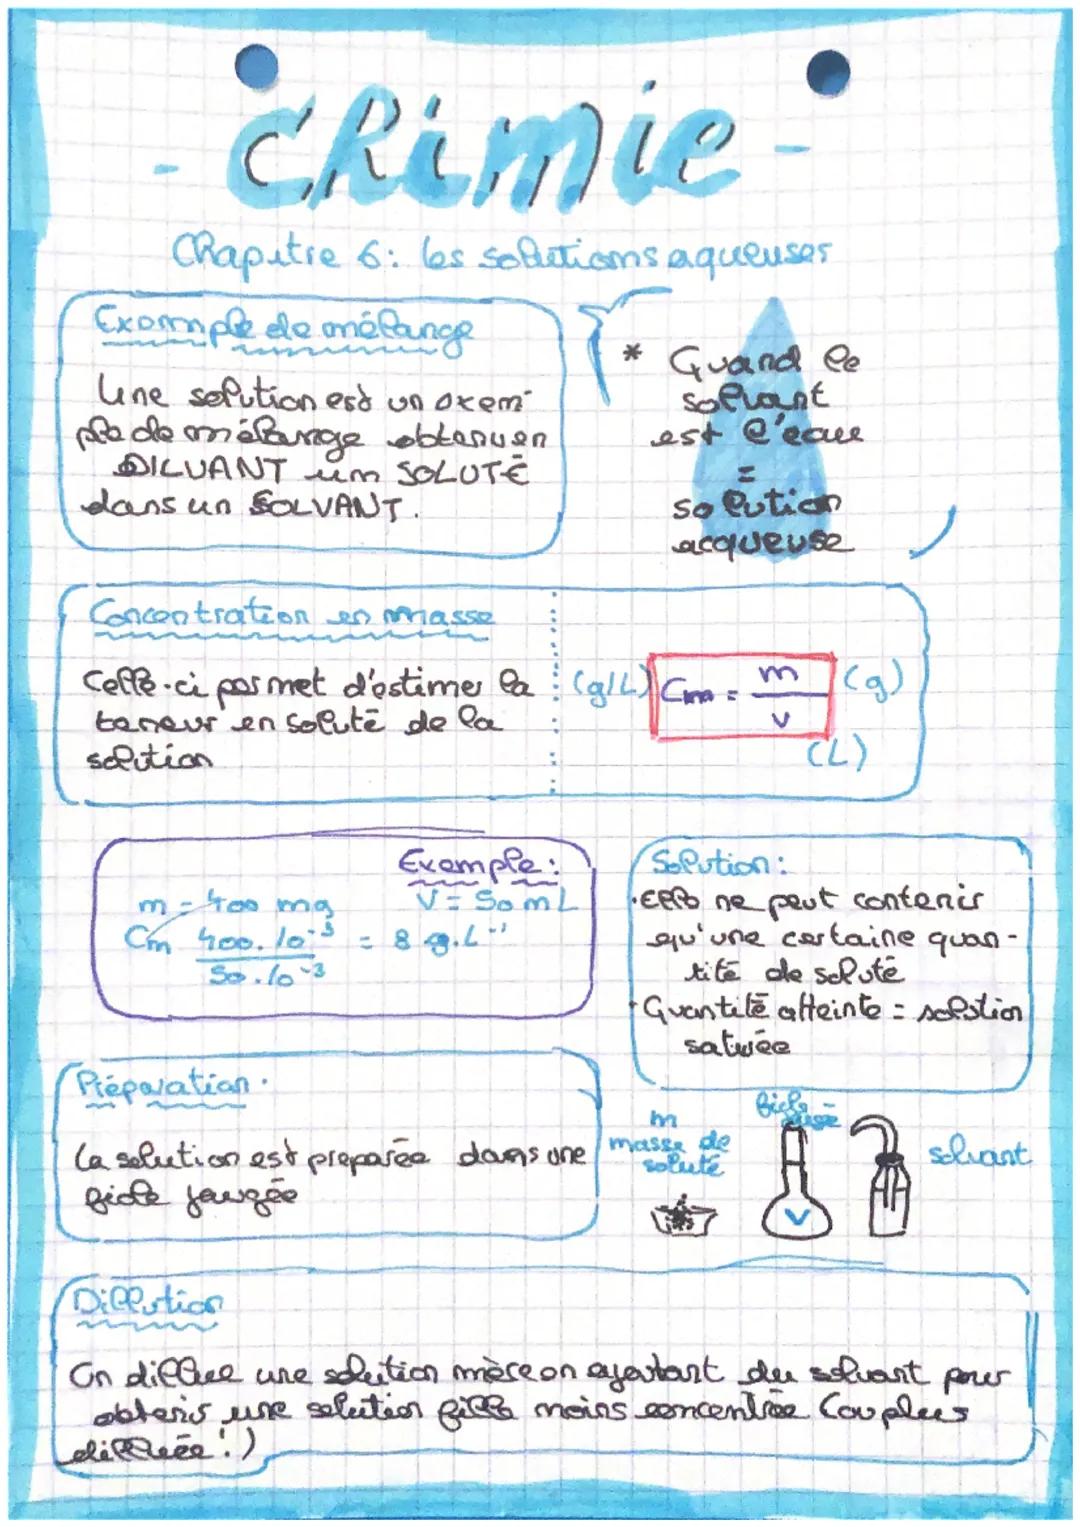 - Chimie -
Chapitre 6: les solutions aqueuses
Exemple de mélange
Une solution est un exem-
ple de mélange obtenu en
DILUANT un SOLUTÉ
dans un SOLVANT.
* Quand le
solvant
est l'eau
=
solution
acqueuse
Concentration en masse
Celle-ci permet d'estimer la
teneur en soluté de la
solution
(g/L) Cm = m/v (g)
(L)
Exemple:
m = 400 mg V = 50 mL
Cm 400.10⁻³ = 8 g.L⁻¹
50.10⁻³
Solution:
·Elle ne peut contenir
qu'une certaine quan-
tité de soluté
·Quantité atteinte = solution
saturée
Préparation.
La solution est préparée dans une
fiole jaugée
m
masse de
soluté
fiole
jaugé
V
solvant
Dillution
On dillue une solution mère en ajoutant du solvant pour
obtenir une solution fille moins concentrée (ou plus
dilluée!)